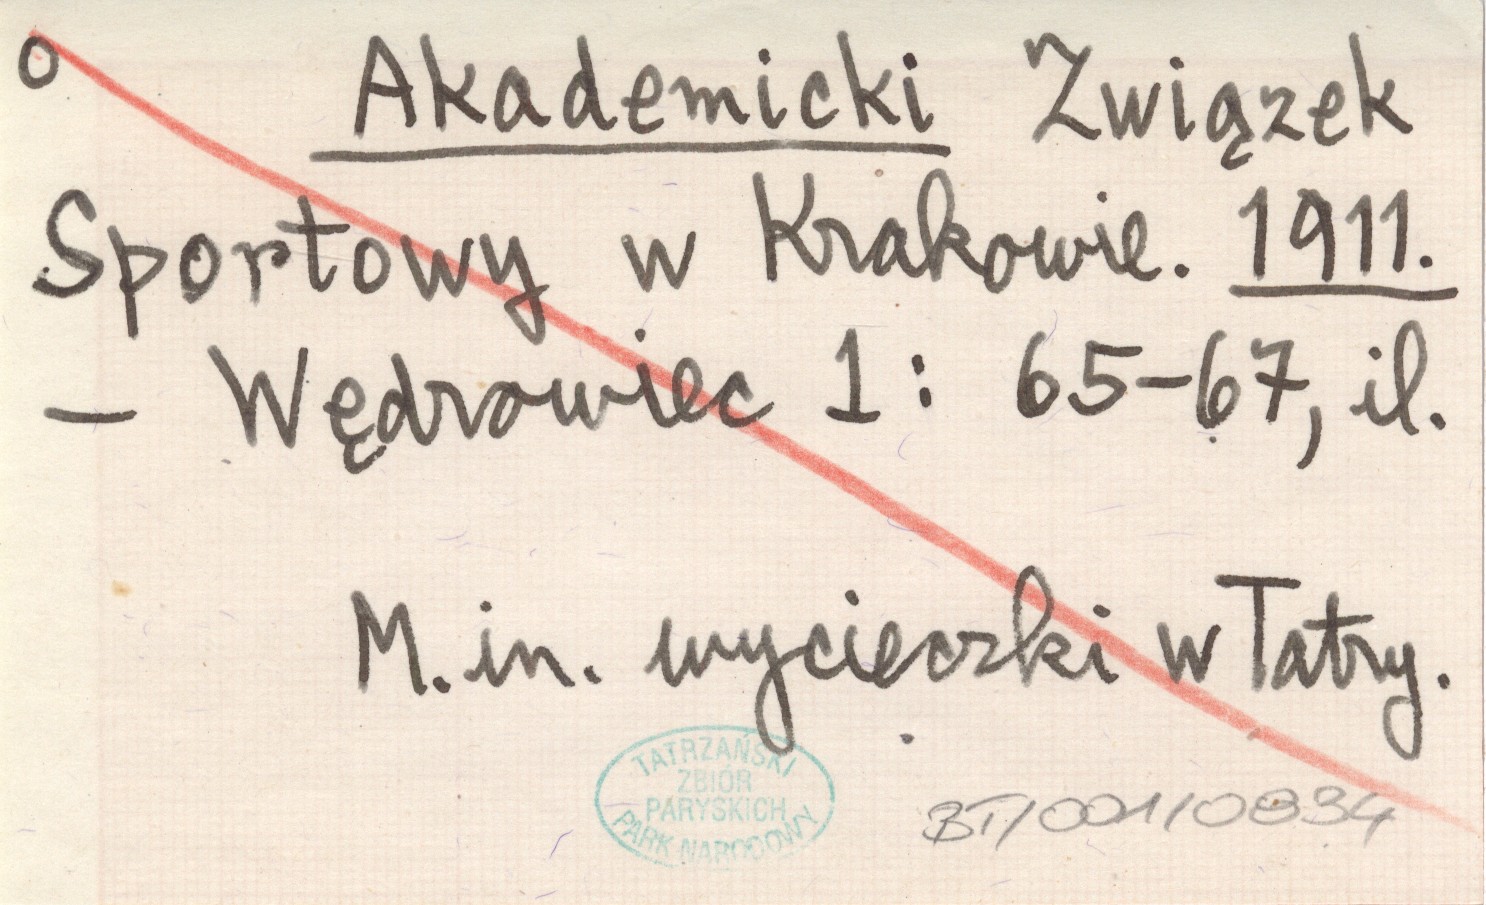 o Akademicki Związek
Sportowy w Krakowie. 1911.
— Wędrowiec 1: 65-67, il.
M. in. wycieczki w Tatry.
TATRZAŃSKI
ZBIÓR
PARYSKICH
PARK NARODOWY
BT/001/0834